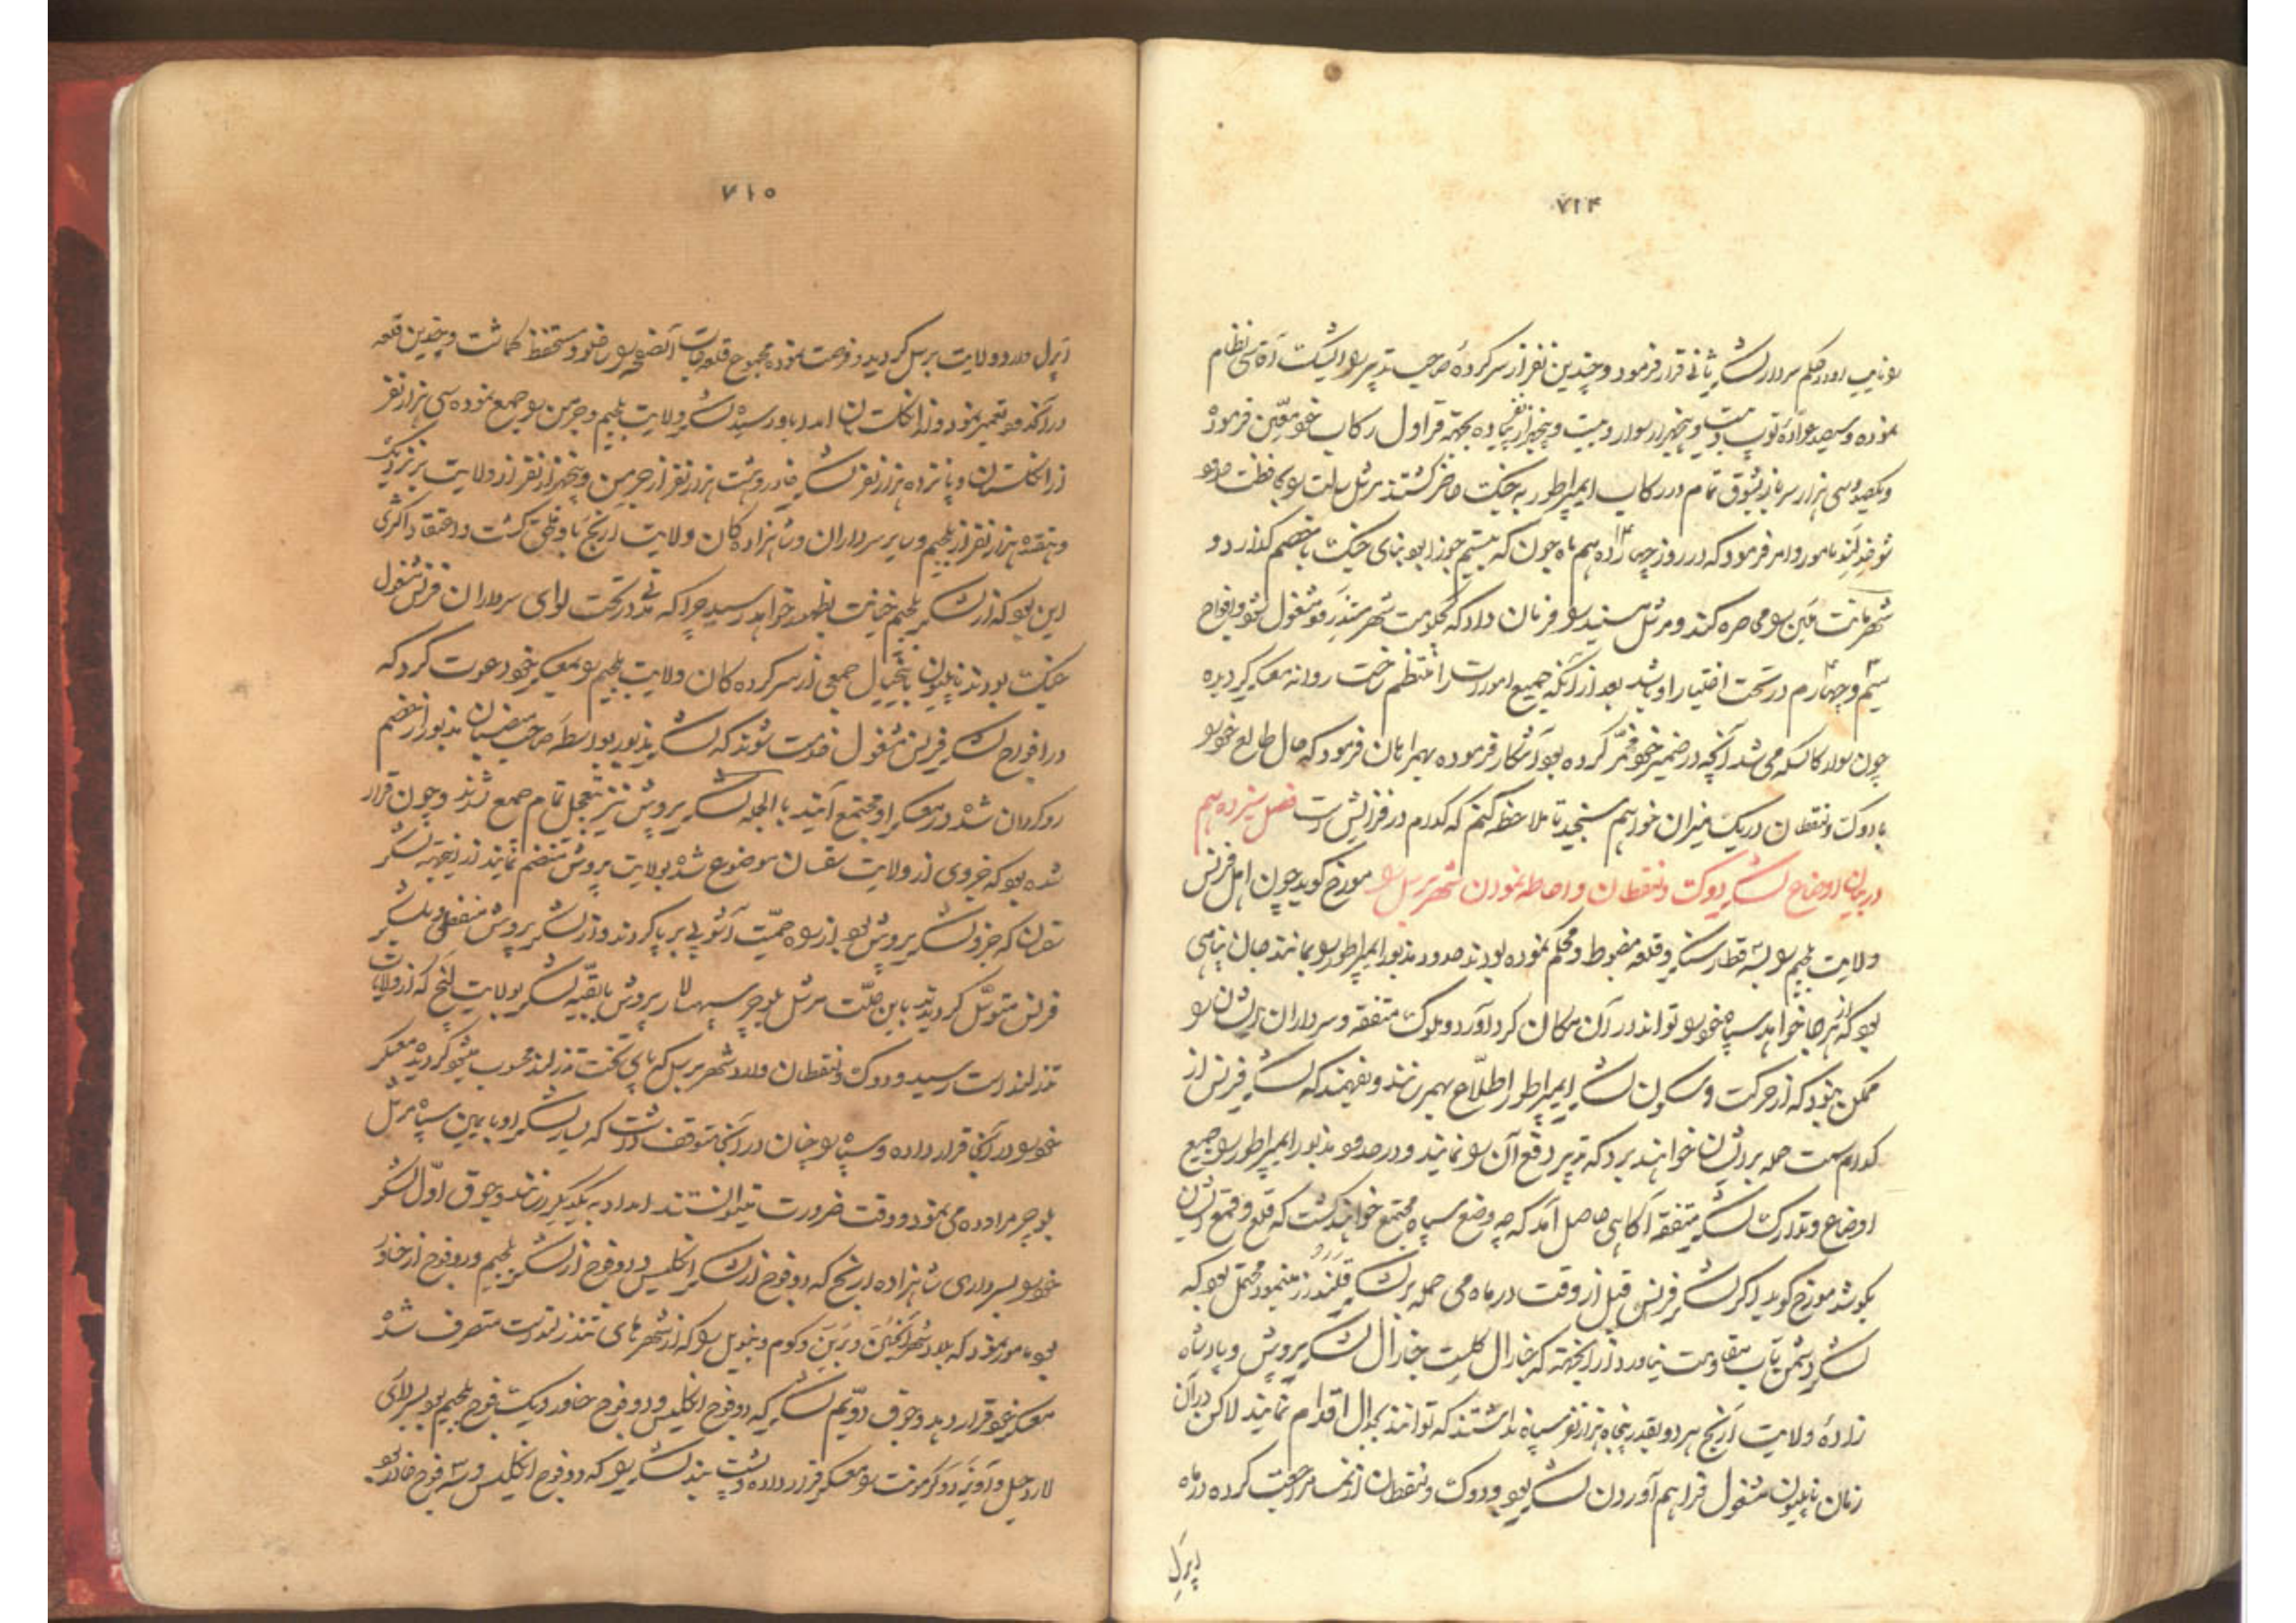 ۷۱۴
نموده و سیصد عرّاده توپ و بیست و پنجهزار سوار و بیست و پنجهزار نفر پیاده بجهة قراول رکاب خود معّین فرموده
و یکصد و سی هزار سرباز بشوق تمام در رکاب ایمپراطور به جنگ حاضر گشتند مرشل سلت بمحافظت
مامور و امر فرمود که در روز چهاردهم ماه جون که بیستم جوزا بود بنای جنگ با خصم گذارد و
محاصره کند و مرشل فرمان داد که بحکومت شهر مشغول شود و افواج
سیم و چهارم در تحت اختیار او باشد بعد از آنکه جمیع امورات را منتظم ساخت روانه معسکر گردیده
چون سوار کالسکه می شد آنچه در ضمیر خود مخمّر کرده بود آشکار فرموده بهمراهان فرمود که حال طالع خود را
با دوک ونقطان در یک میزان خواهم سنجید تا ملاحظه کنم که کدام در فزایش است فصل سیزدهم
در بیان اوضاع لشکر دوک ونقطان و احاطه نمودن شهر برسل مورخ گوید چون اهل فرنس
ولایت بلجیم را بسه قطار سنگر و قلعه مضبوط و محکم نموده بودند حدود مذبور ایمپراطور را بمانند جان پناهی
بود که از هر جا خواهد سپاه خود را تواند در آن مکان گرد آورد و ملوک متفقه و سرداران ایشان را
ممکن نبود که از حرکت و سکون لشکر ایمپراطور اطلاع بهم رسانند و بفهمند که لشکر فرنس از
کدام سمت حمله بر ایشان خواهند برد که تدبیر دفع آن را نمایند و در حدود مذبور ایمپراطور را جمیع
اوضاع و تدارک لشکر متفقه آگاهی حاصل آمد که چه وضع سپاه مجتمع خواهند گشت که قلع و قمع ایشان
بکوشد مورخ گوید اگر لشکر فرنس قبل از وقت در ماه می حمله بر لشکر مینمود محتمل بود که
لشکر دشمن تاب مقاومت نیاورد از آنجهة که جنارال کلیست جنارال لشکر پروش و پادشاه
زادهٔ ولایت آرنج هر دو بقدر پنجاه هزار نفر سپاه نداشتند که توانند بجدال اقدام نمایند لاکن در آن
زمان ناپلیون مشغول فراهم آوردن لشکر بود و دوک ونقطان از نمسا مراجعت کرده در ماه
اپرل
۷۱۵
اپرل وارد ولایت برسل گردید و فرصت نموده مجموع قلعجات و چندین قلعه
در آن حدود تعمیر نمود و از انگلستان امداد باو رسید لشکر ولایت بلجیم و جرمن را جمع نموده سی هزار نفر
از انگلستان و پانزده هزار نفر لشکر و هشت هزار نفر از جرمن و پنجهزار نفر از ولایت برنزویک
و هفده هزار نفر از بلجیم و سایر سرداران و شاهزادگان ولایت ارنج باو ملحق گشت و اعتقاد اکثری
این بود که از لشکر بلجیم خیانت بظهور خواهد رسید چرا که مدتی در تحت لوای سرداران فرنس مشغول
جنگ بودند ناپلیون باینخیال جمعی از سرکرده کان ولایت بلجیم را بمعسکر خود دعوت کرد که
در افواج لشکر فرنس مشغول خدمت شوند که لشکر مذبور بواسطه صاحب منصبان مذبور از خصم
روگردان شده در معسکر او مجتمع آیند با الجمله لشکر پروش نیز بتعجیل تمام جمع شدند و چون قرار
شده بود که جزوی از ولایت سقسان موضوع شده بولایت پروش منضم نمایند از اینجهة لشکر
سقسان که جزو لشکر پروش بود از راه حمیّت آشوبی بر پا کردند و از لشکر پروش منفصل و بلشکر
فرنس متوسّل گردیدند باین علّت مرشل بلوچر سپهسالار پروش با بقیّه لشکر بولایت لیج که از ولایات
ندرلند است رسید و دوک ونقطان وارد شهر برسل که پای تخت ندرلند محسوب میشود گردیده معسکر
خود را در آنجا قرار داده و سپاه را چنان در آنجا متوقف داشت که یسار لشکر او با یمین سپاه مرشل
بلوچر مراوده می نمود و وقت ضرورت میتوانستند امداد به یکدیگر رسانند و جوق اوّل لشکر
خود را بسرداری شاهزاده ارنج که دو فوج از لشکر انگلیس و دو فوج از لشکر بلجیم و دو فوج از
بود مامور نمود که بلاد را که از شهرهای ندرلند است متصرف شده
معسکر خود قرار دهد و جوق دویّم لشکر که دو فوج انگلیس و دو فوج و یک فوج بلجیم بود بسرداری
لارد هل معسکر قرار داده و پشت بند لشکر را که دو فوج انگلیس و سه فوج